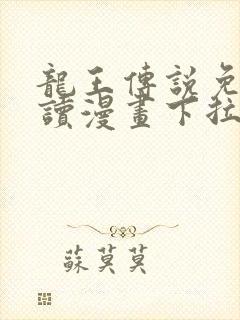 龍王傳說免
讀漫畫下拉
蘇莫莫